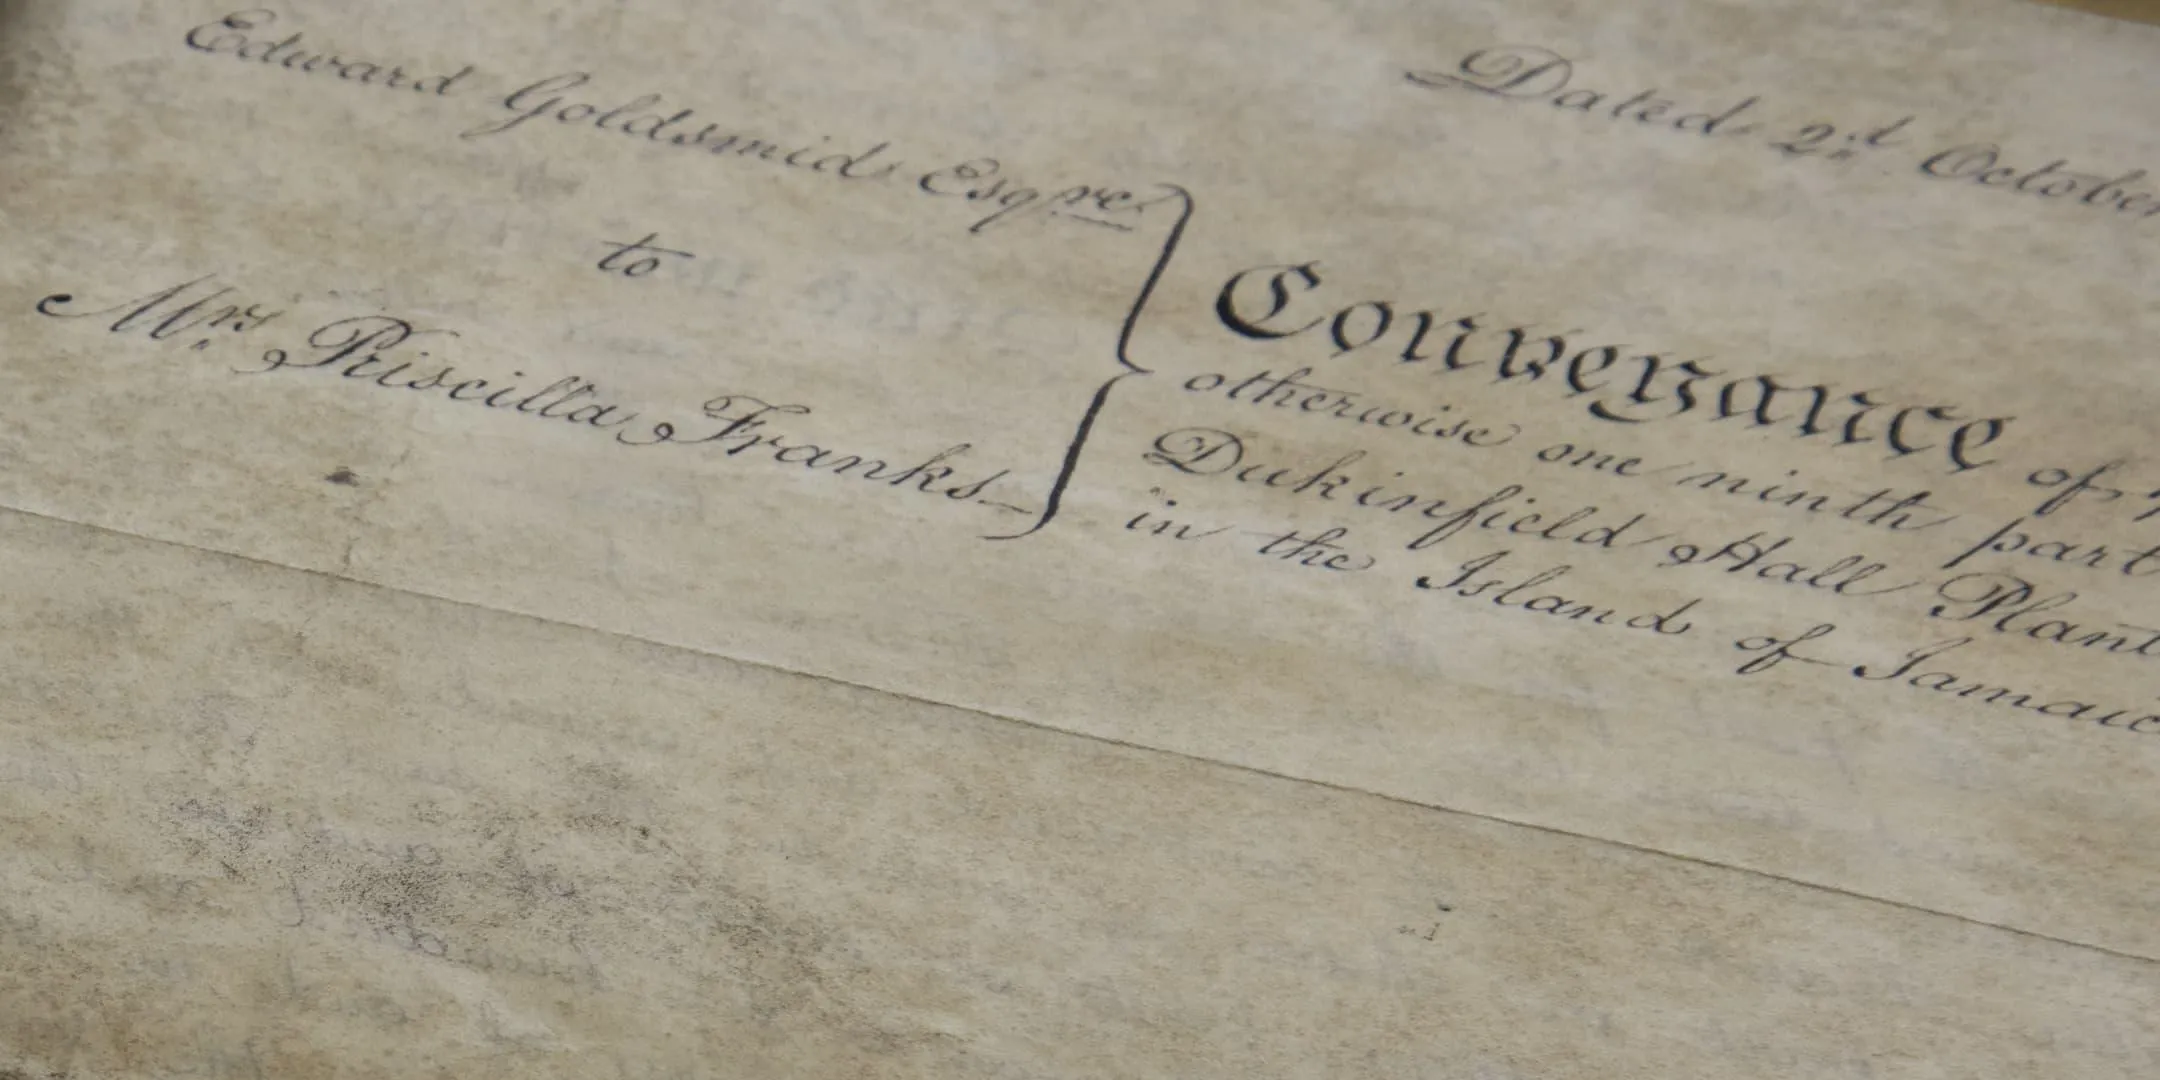 Dated 2d October
Edward Goldsmid Esqre
to
Mrs Priscilla Franks
Conveyance of
otherwise one ninth part
Dukinfield Hall Plant
in the Island of Jamaic